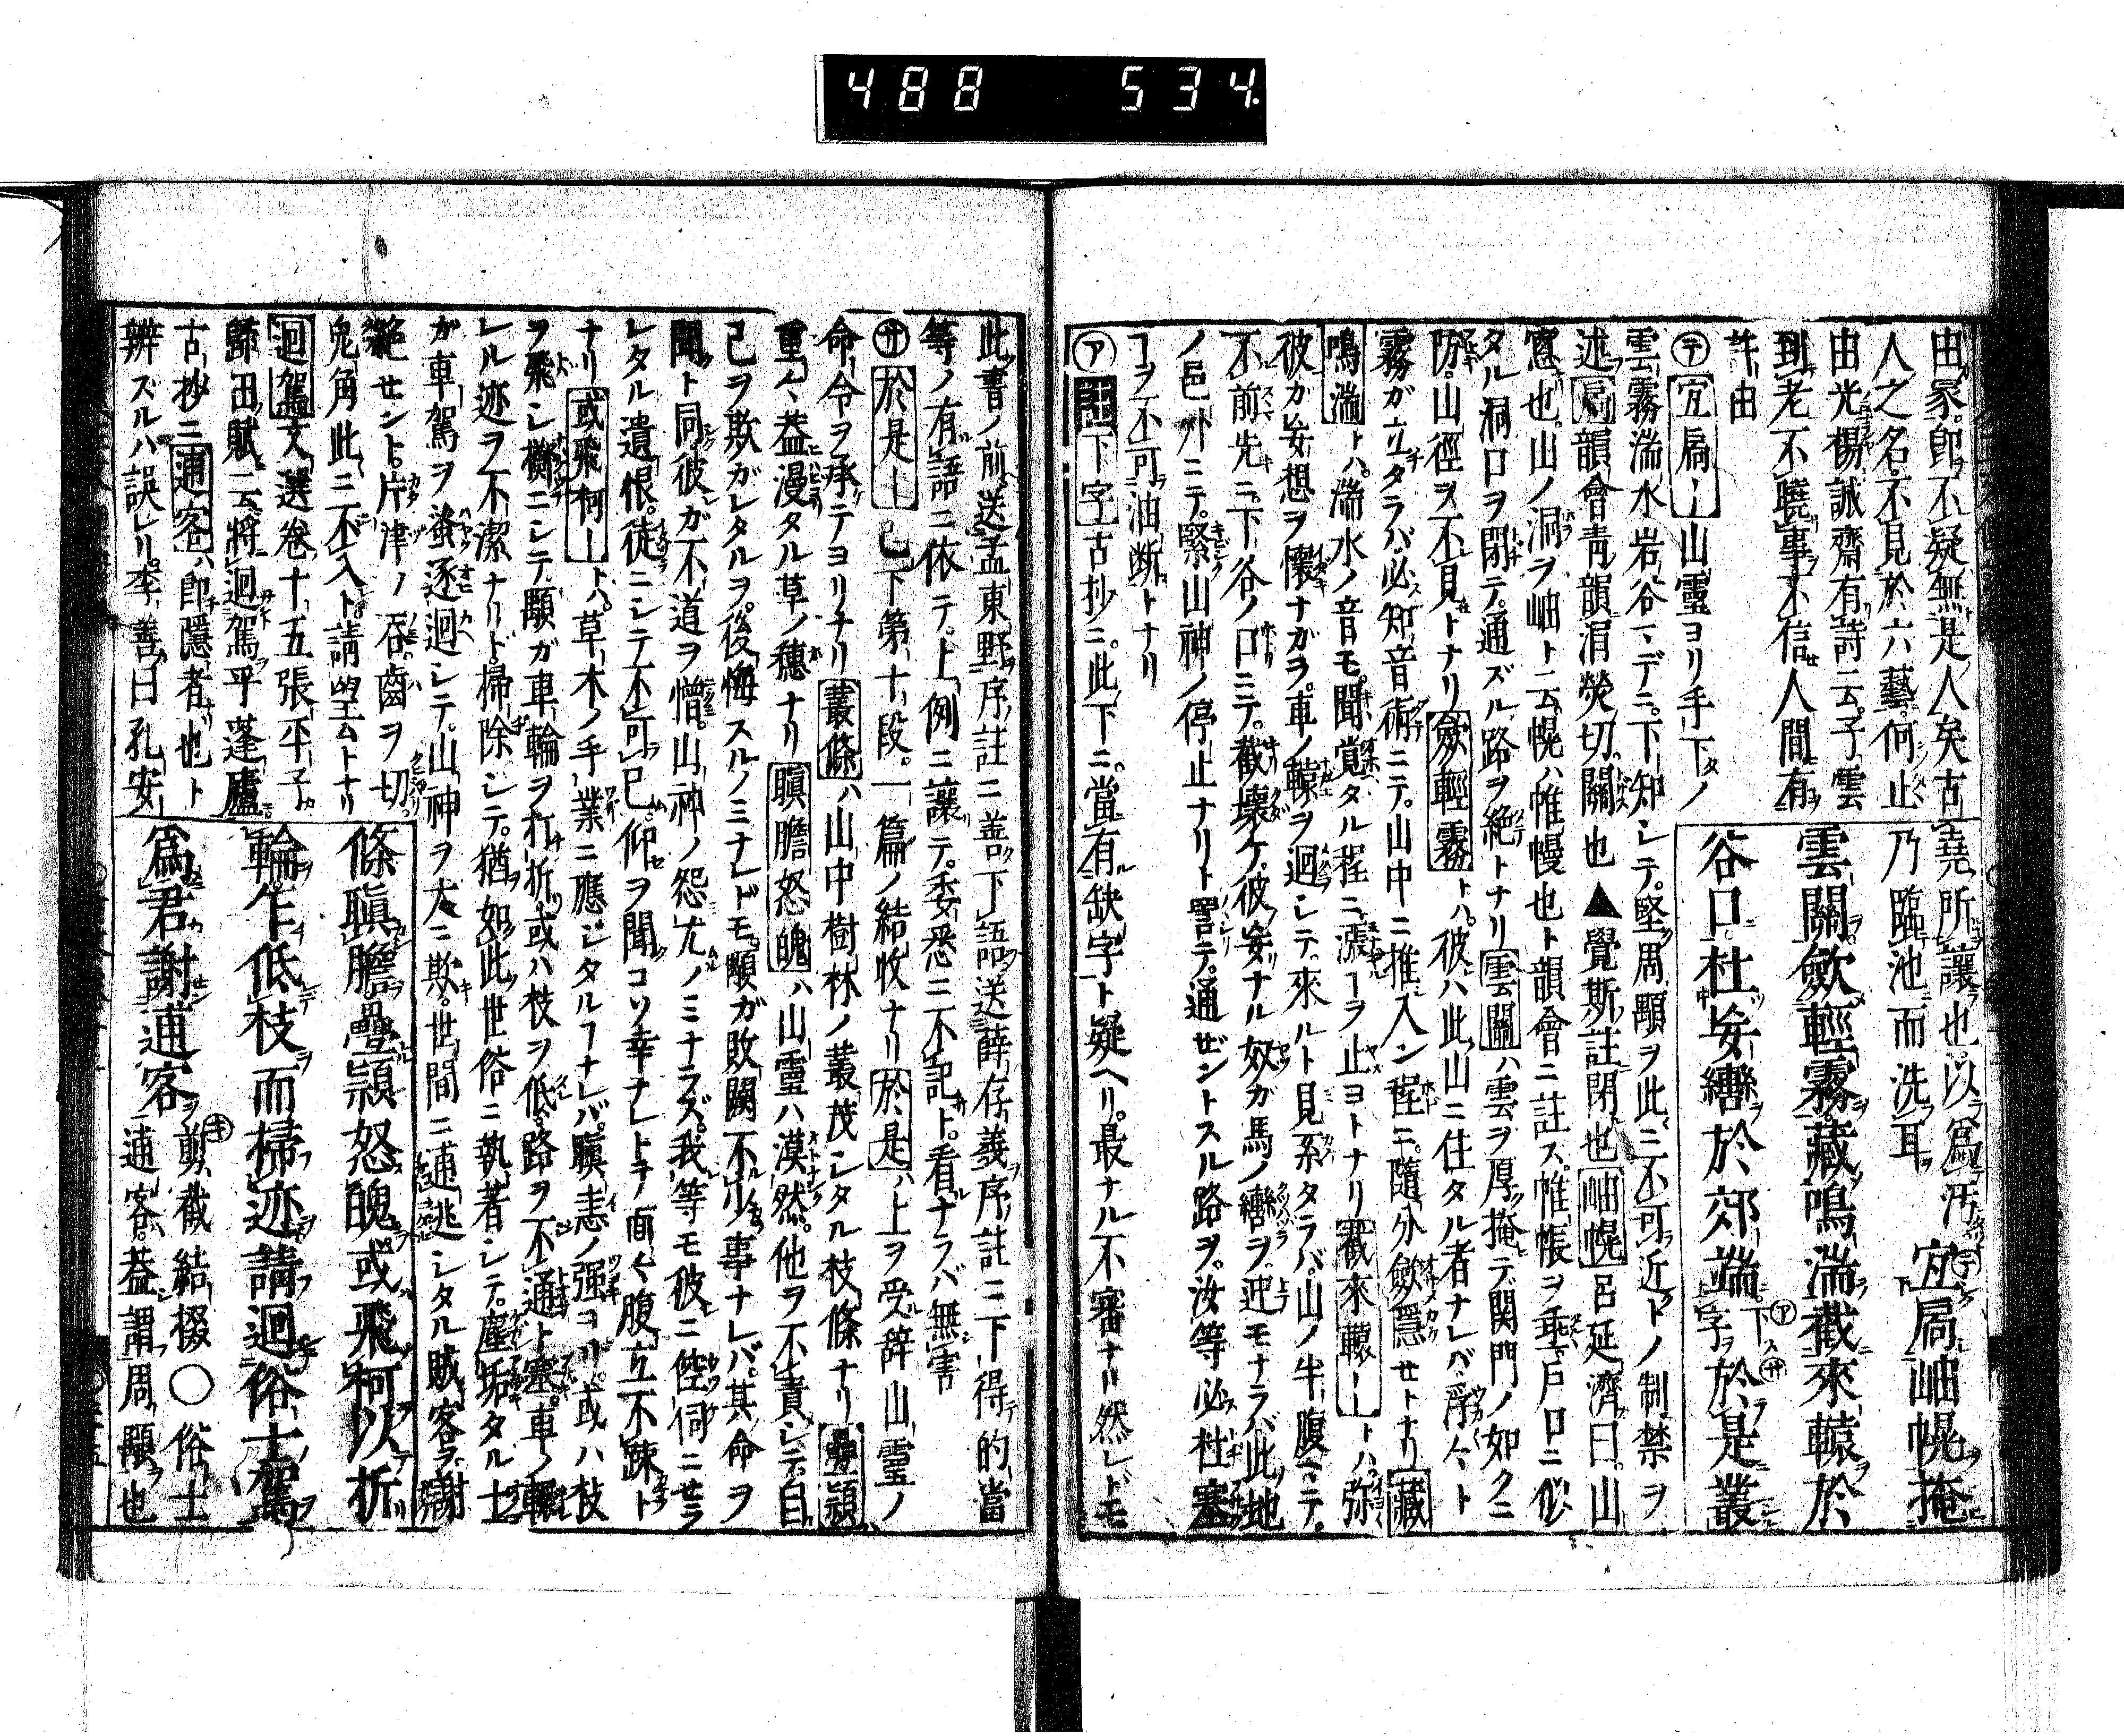 488 534.
由冢即不疑無是人矣古
人之名不見於六藝何止
由光楊誠齋有詩云子雲
到老不曉事不信人間有
許由
堯所讓也以爲汚
乃臨池而洗耳
宜扃岫幌掩
雲關歛輕霧藏鳴湍截來轅於
谷口杜妄轡於郊端下字於是叢
㋢宜扃ー山靈ヨリ手下ノ
雲霧湍水岩谷マデニ下知シテ堅周顒ヲ此ニ不可近トノ制禁ヲ
述扃韻會青韻涓熒切關也▲覺斯註閉也岫幌呂延濟曰山
窓也山ノ洞ヲ岫ト云幌ハ帷幔也ト韻會ニ註ス帷帳ヲ垂戸口ニ似
タル洞口ヲ閉テ通ズル路ヲ絶トナリ雲關ハ雲ヲ厚掩テ関門ノ如クニ
防山徑ヲ不見トナリ歛輕霧トハ彼ハ此山ニ住タル者ナレバ浮々ト
霧ガ立タラバ必知音術ニテ山中ニ推入ン程ニ隨分歛隱セトナリ藏
鳴湍トハ湍水ノ音モ聞覚タル程ニ漲ヿヲ止ヨトナリ截來轅ートハ弥
彼カ妄想ヲ懷ナガラ車ノ轅ヲ迴シテ來ルト見系タラバ山ノ半腹ニテ
不前先ニ下谷ノ口ニテ截壞ケ彼妄ナル奴カ馬ノ轡ヲ迎モナラバ此地
ノ邑外ニテ緊山神ノ停止ナリト詈テ通ゼントスル路ヲ汝等必杜塞
ヿヲ不可油断トナリ
㋐下字古抄ニ此下ニ當有缺字ト疑ヘリ最ナル不審ナリ然レドモ
此書ノ前送孟東野序註ニ善下語送薛存義序註ニ下得的當
等ノ有語ニ依テ上例ニ讓テ委悉ニ不記ト看ナラバ無害
㋚於是ー已下第十段一篇ノ結收ナリ於是ハ上ヲ受辞山靈ノ
命令ヲ承テヨリナリ叢條ハ山中樹林ノ叢茂シタル枝條ナリ疊頴
重々蓋漫タル草ノ穗ナリ瞋膽怒魄ハ山靈ハ漠然他ヲ不責シテ自
己ヲ欺ガレタルヲ後悔スルノミナレドモ顒ガ敗闕不少事ナレバ其命ヲ
聞ト同彼ガ不道ヲ憎山神ノ怨尤ノミナラズ我等モ彼ニ倥侗ニセラ
レタル遺恨徒ニシテ不可已仰ヲ聞コソ幸ナレトテ面々腹立不踈ト
ナリ或飛柯ートハ草木ノ手業ニ應ジタルヿナレバ瞋恚ノ强ヨリ或ハ枝
ヲ飛シ擲ニシテ顒ガ車輪ヲ打折或ハ枝ヲ低路ヲ不通ト塞車ノ轍
レル迹ヲ不潔ナリト掃除シテ猶如此世俗ニ執著シテ塵垢タル士
ガ車駕ヲ逐迴シテ山神ヲ大ニ欺世間ニ逋逃シタル賊客ヲ謝
絶セント片津ノ呑齒ヲ切
鬼角此ニ不入ト請望云トナリ
迴駕文選卷十五張平子
歸田賦云將迴駕乎蓬廬
古抄ニ逋客ハ即隱者也ト
辨ズルハ誤レリ李善曰孔安
條瞋膽疊穎怒魄或飛柯以折
輪乍低枝而掃迹請迴俗士駕
爲君謝逋客
㋖剪截結掇○俗士
逋客蓋謂周顒也